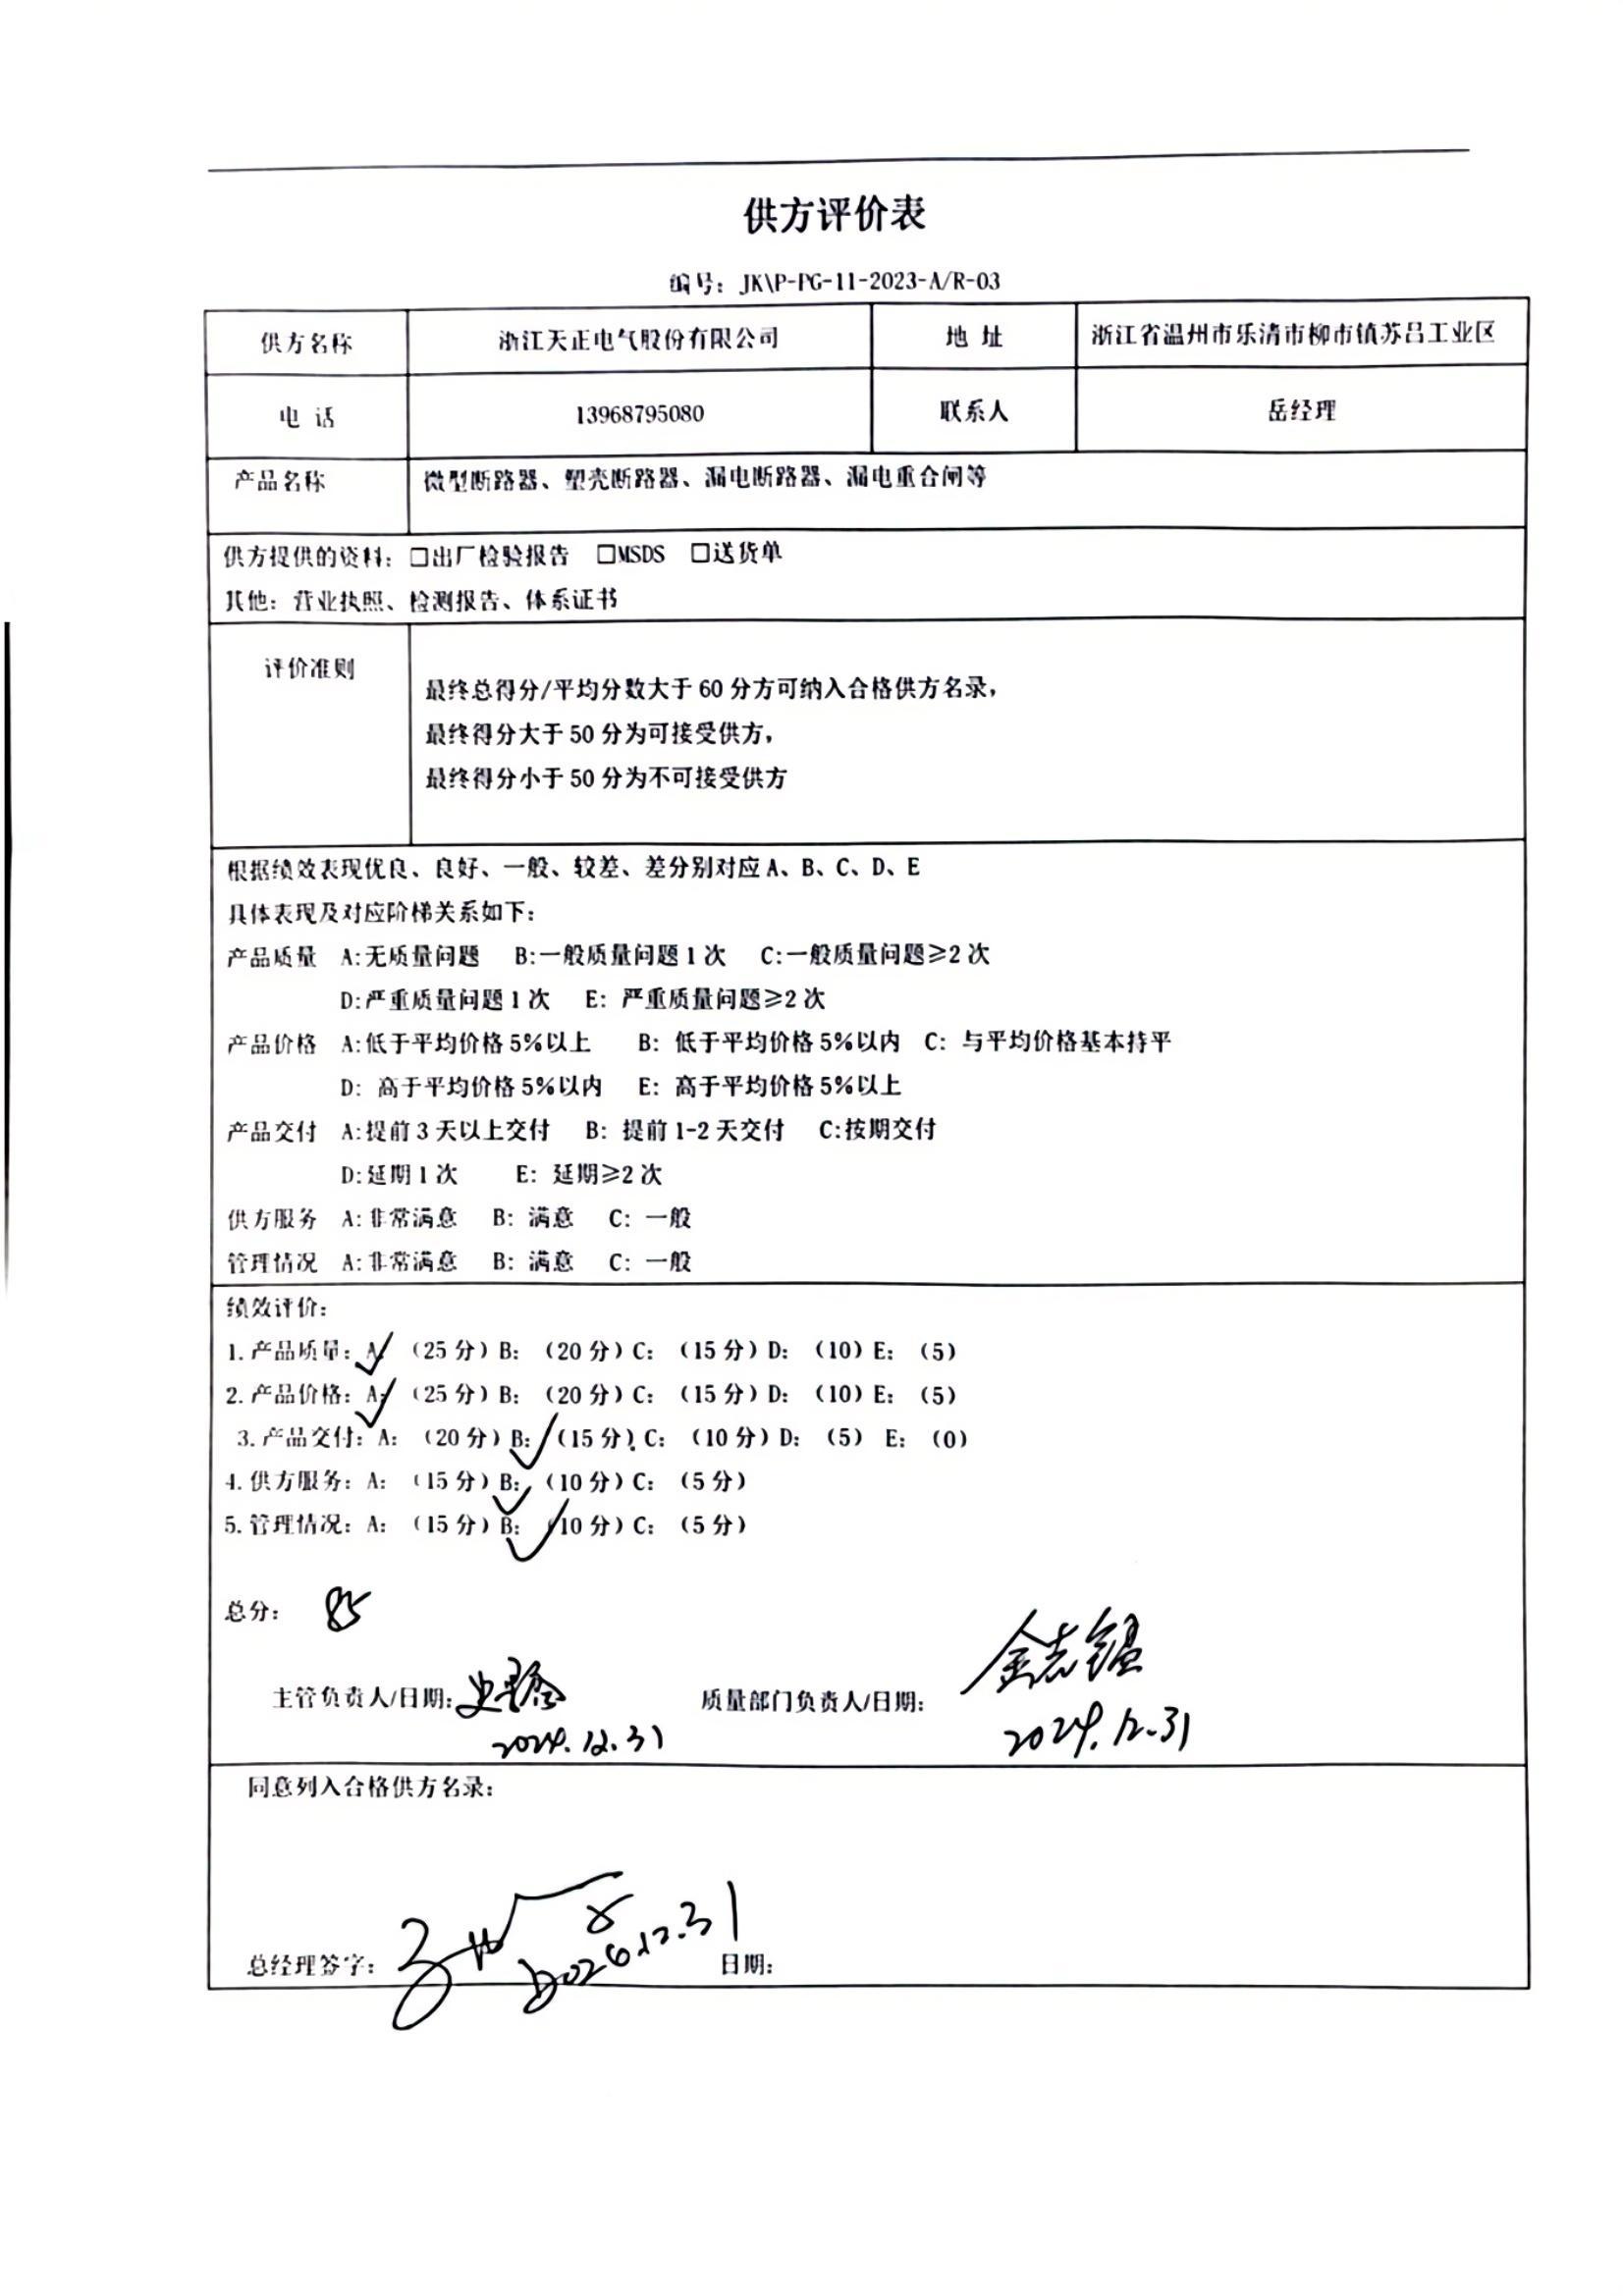 供方评价表
编号：JK\P-PG-11-2023-A/R-03
供方名称 浙江天正电气股份有限公司 地 址 浙江省温州市乐清市柳市镇苏吕工业区
电 话 13968795080 联系人 岳经理
产品名称 微型断路器、塑壳断路器、漏电断路器、漏电重合闸等
供方提供的资料：□出厂检验报告 □MSDS □送货单
其他：营业执照、检测报告、体系证书
评价准则
最终总得分/平均分数大于 60 分方可纳入合格供方名录，
最终得分大于 50 分为可接受供方，
最终得分小于 50 分为不可接受供方
根据绩效表现优良、良好、一般、较差、差分别对应 A、B、C、D、E
具体表现及对应阶梯关系如下：
产品质量 A:无质量问题 B:一般质量问题 1 次 C:一般质量问题≥2 次
D:严重质量问题 1 次 E: 严重质量问题≥2 次
产品价格 A:低于平均价格 5%以上 B: 低于平均价格 5%以内 C: 与平均价格基本持平
D: 高于平均价格 5%以内 E: 高于平均价格 5%以上
产品交付 A:提前 3 天以上交付 B: 提前 1-2 天交付 C:按期交付
D:延期 1 次 E: 延期≥2 次
供方服务 A:非常满意 B: 满意 C: 一般
管理情况 A:非常满意 B: 满意 C: 一般
绩效评价：
1. 产品质量：A: ✓（25 分）B: （20 分）C: （15 分）D: （10）E: （5）
2. 产品价格：A: ✓（25 分）B: （20 分）C: （15 分）D: （10）E: （5）
3. 产品交付：A: （20 分）B: ✓（15 分）C: （10 分）D: （5）E: （0）
4. 供方服务：A: （15 分）B: ✓（10 分）C: （5 分）
5. 管理情况：A: （15 分）B: ✓（10 分）C: （5 分）
总分： 85
主管负责人/日期： 质量部门负责人/日期： 金志锟
2024.12.31 2024.12.31
同意列入合格供方名录：
总经理签字： 日期：